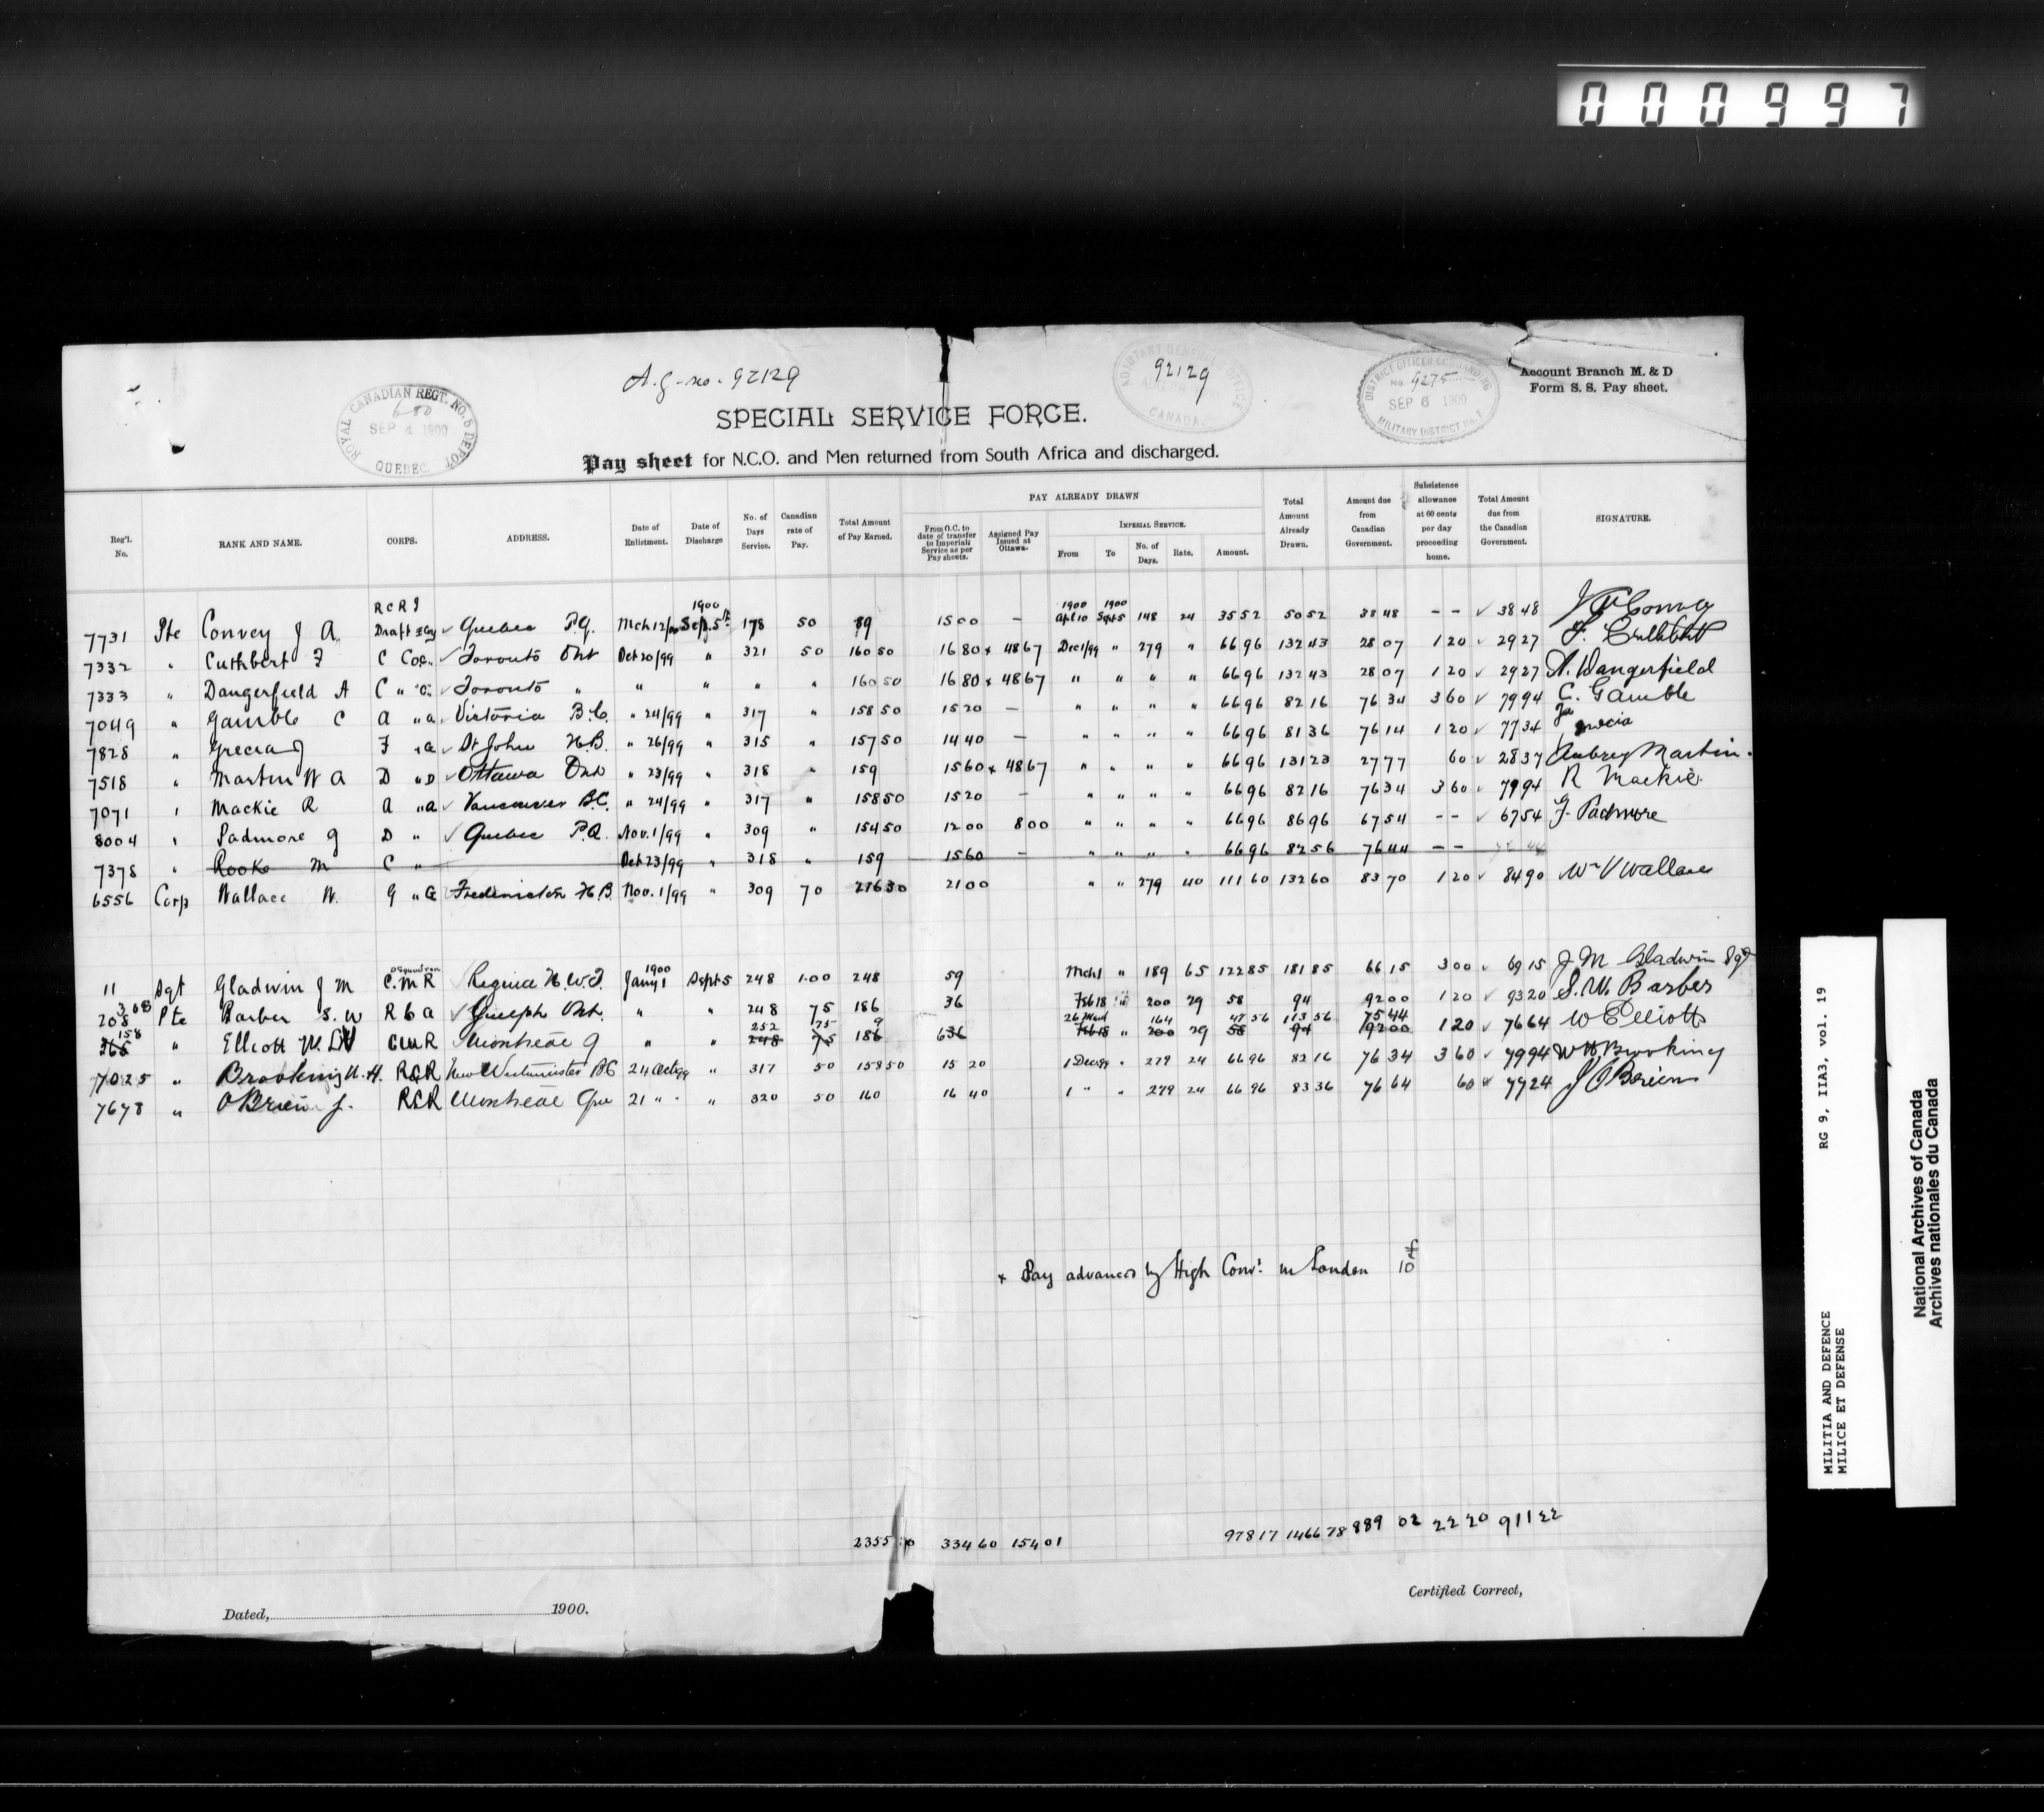 000997
A.G. no. 92129
ROYAL CANADIAN REGT. NO. 5 DEPOT
680
SEP 4 1900
QUEBEC.
ADJUTANT GENERAL'S OFFICE
92129
CANADA.
DISTRICT OFFICER COMMANDING
No. 9275
SEP 6 1900
MILITARY DISTRICT No. 7
Account Branch M. & D
Form S. S. Pay sheet.
SPECIAL SERVICE FORCE.
Pay sheet for N.C.O. and Men returned from South Africa and discharged.
Reg'l. No. RANK AND NAME. CORPS. ADDRESS. Date of Enlistment. Date of Discharge No. of Days Service. Canadian rate of Pay. Total Amount of Pay Earned. PAY ALREADY DRAWN From O.C. to date of transfer to Imperial Service as per Pay sheets. Assigned Pay Issued at Ottawa. IMPERIAL SERVICE. From To No. of Days. Rate. Amount. Total Amount Already Drawn. Amount due from Canadian Government. Subsistence allowance at 60 cents per day proceeding home. Total Amount due from the Canadian Government. SIGNATURE.
RCRI 1900 1900 1900
7731 Pte Convey J A Draft ✓ Quebec P.Q. Mch 12/00 Sep. 5th 178 50 89 15 00 — Apl 10 Sept 5 148 24 35 52 50 52 38 48 - - ✓ 38 48
7332 " Cuthbert F C Coy ✓ Toronto Ont Oct 20/99 " 321 50 160 50 16 80 x 48 67 Dec 1/99 " 279 " 66 96 132 43 28 07 1 20 ✓ 29 27 F. Cuthbert
7333 " Dangerfield A C " ✓ Toronto " " " " " 160 50 16 80 x 48 67 " " " " 66 96 132 43 28 07 1 20 ✓ 29 27 A. Dangerfield
7049 " Gamble C A " ✓ Victoria B.C. " 24/99 " 317 " 158 50 15 20 — " " " " 66 96 82 16 76 34 3 60 ✓ 79 94 C. Gamble
7828 " Grecia J F " ✓ St John N.B. " 26/99 " 315 " 157 50 14 40 — " " " " 66 96 81 36 76 14 1 20 ✓ 77 34 Grecia
7518 " Martin W A D " ✓ Ottawa Ont " 23/99 " 318 " 159 15 60 x 48 67 " " " " 66 96 131 23 27 77 60 ✓ 28 37 Aubrey Martin.
7071 " Mackie R A " ✓ Vancouver B.C. " 24/99 " 317 " 158 50 15 20 — " " " " 66 96 82 16 76 34 3 60 ✓ 79 94 R Mackie
8004 " Padmore G D " ✓ Quebec P.Q. Nov. 1/99 " 309 " 154 50 12 00 8 00 " " " " 66 96 86 96 67 54 - - ✓ 67 54 G. Padmore
7378 " Rooke M C " Oct 23/99 " 318 " 159 15 60 — " " " " 66 96 82 56 76 44 - -
6556 Corp Wallace W. G " Fredericton N.B. Nov. 1/99 " 309 70 216 30 21 00 " " 279 40 111 60 132 60 83 70 1 20 ✓ 84 90 Wm V Wallace
1900
11 Sgt Gladwin J M C.M.R ✓ Regina N.W.T. Jany 1 Sept 5 248 1.00 248 59 Mch 1 " 189 65 122 85 181 85 66 15 3 00 ✓ 69 15 J M Gladwin Sgt
208 Pte Barber S. W R C A ✓ Guelph Ont. " " 248 75 186 36 Feb 18 " 200 29 58 94 92 00 1 20 ✓ 93 20 S. W. Barber
158 252 75 9 26 164 47 56 113 56 75 44
" Elliott W. CMR Montreal Q " " 248 75 186 Feb 18 " 200 29 58 94 92 00 1 20 ✓ 76 64 W Elliott
7025 " Brooking W. H. RCR New Westminster BC 24 Oct 99 " 317 50 158 50 15 20 1 Dec 99 " 279 24 66 96 82 16 76 34 3 60 ✓ 79 94 W H Brooking
7678 " O'Brien J. RCR Montreal Que 21 " " " 320 50 160 16 40 1 " " 279 24 66 96 83 36 76 64 60 ✓ 77 24 J O'Brien
x Pay advanced by High Comr. in London £10
2355 334 60 154 01 978 17 1466 78 889 02 22 20 911 22
Dated, 1900.
Certified Correct,
MILITIA AND DEFENCE RG 9, IIA3, vol. 19
MILICE ET DEFENSE
National Archives of Canada
Archives nationales du Canada